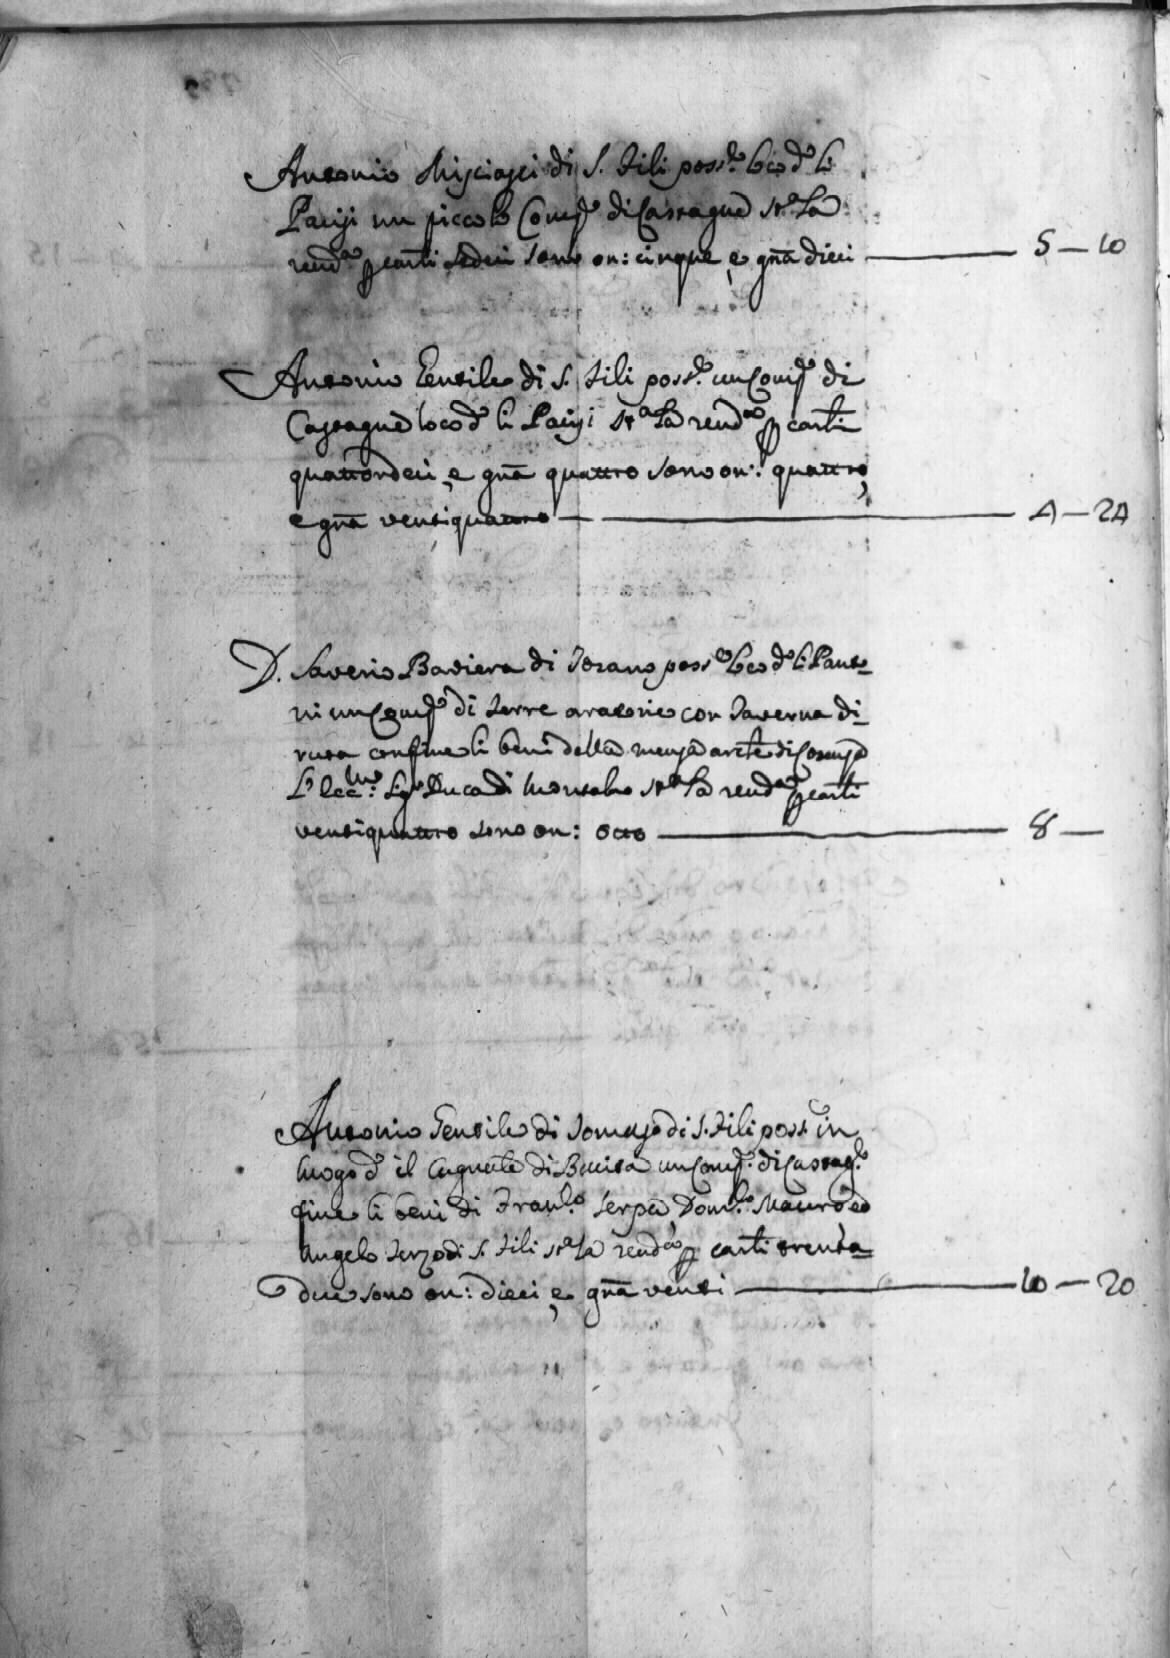 Antonio Misciasci di S. Fili poss.e loco d.o li
Pacisi un piccolo Com.o di Castagne st.a la
rend.a p carlì sedeci sono on: cinque, e gnã dieci — 5 — 10
Antonio Gentile di S. Fili poss.e un Com.o di
Castagne loco d.o li Pacisi st.a la rend.a p carlì
quattordeci, e gnã quattro sono on: quattro,
e gnã ventiquattro — 4 — 24
D. Saverio Baviera di poss.e loco d.o li Panto=
ni un Com.o di terre aratorie con Taverna di=
ruta confine li beni della mensa di Cosenza
L'Ecc.mo Sig.r Duca di Montalto st.a la rend.a p carlì
ventiquattro sono on: otto — 8 —
Antonio Gentile di Tomaso di S. Fili poss.e in
luogo d.o il di un Com.o di Castag.e
fine li beni di Fran.co Serpa, Dom.co Mauro ed
Angelo Terzo di S. Fili st.a la rend.a p carlì trenta=
due sono on: dieci, e gnã venti — 10 — 20